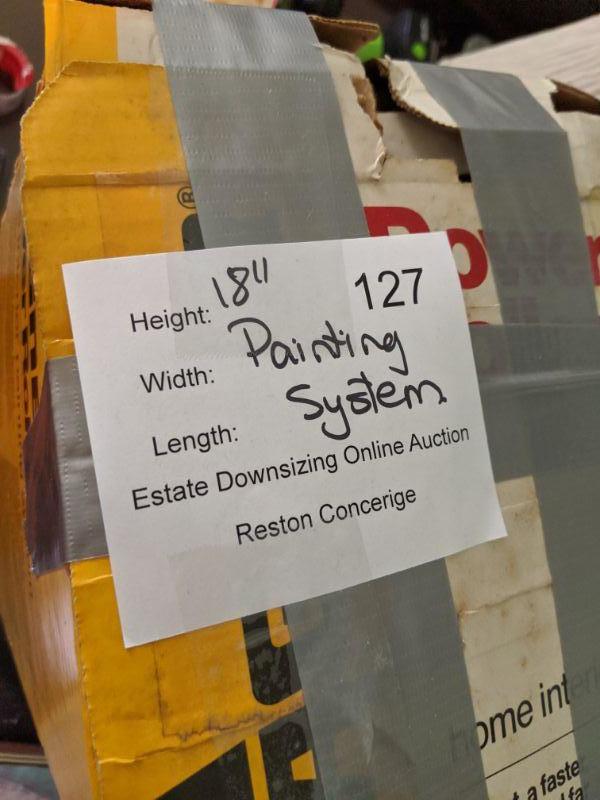 ®
Power
Height: 18" 127
Width: Painting
System
Length:
Estate Downsizing Online Auction
Reston Concerige
home inter
t a faste